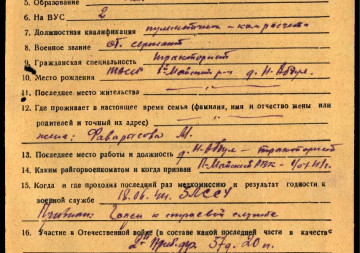 5. Образование
6. На ВУС 2
7. Должностная квалификация пулеметчик - ком. расчета
8. Военное звание ст. сержант
9. Гражданская специальность тракторист
10. Место рождения ТАССР П-Майский р-н д. Н-
11. Последнее место жительства
12. Где проживает в настоящее время семья (фамилия, имя и отчество жены или
родителей и точный их адрес)
жена: М.
13. Последнее место работы и должность д. Н- - тракторист
14. Каким райгорвоенкоматом и когда призван П-Майский РВК -
15. Когда и где проходил последний раз медкомиссию и результат годности к
военной службе 18.06.44. ЗЛССУ
Признан: Годен к строевой службе
16. Участие в Отечественной войне (в составе какой последней части и качестве)
2й 57 д. 20 п.